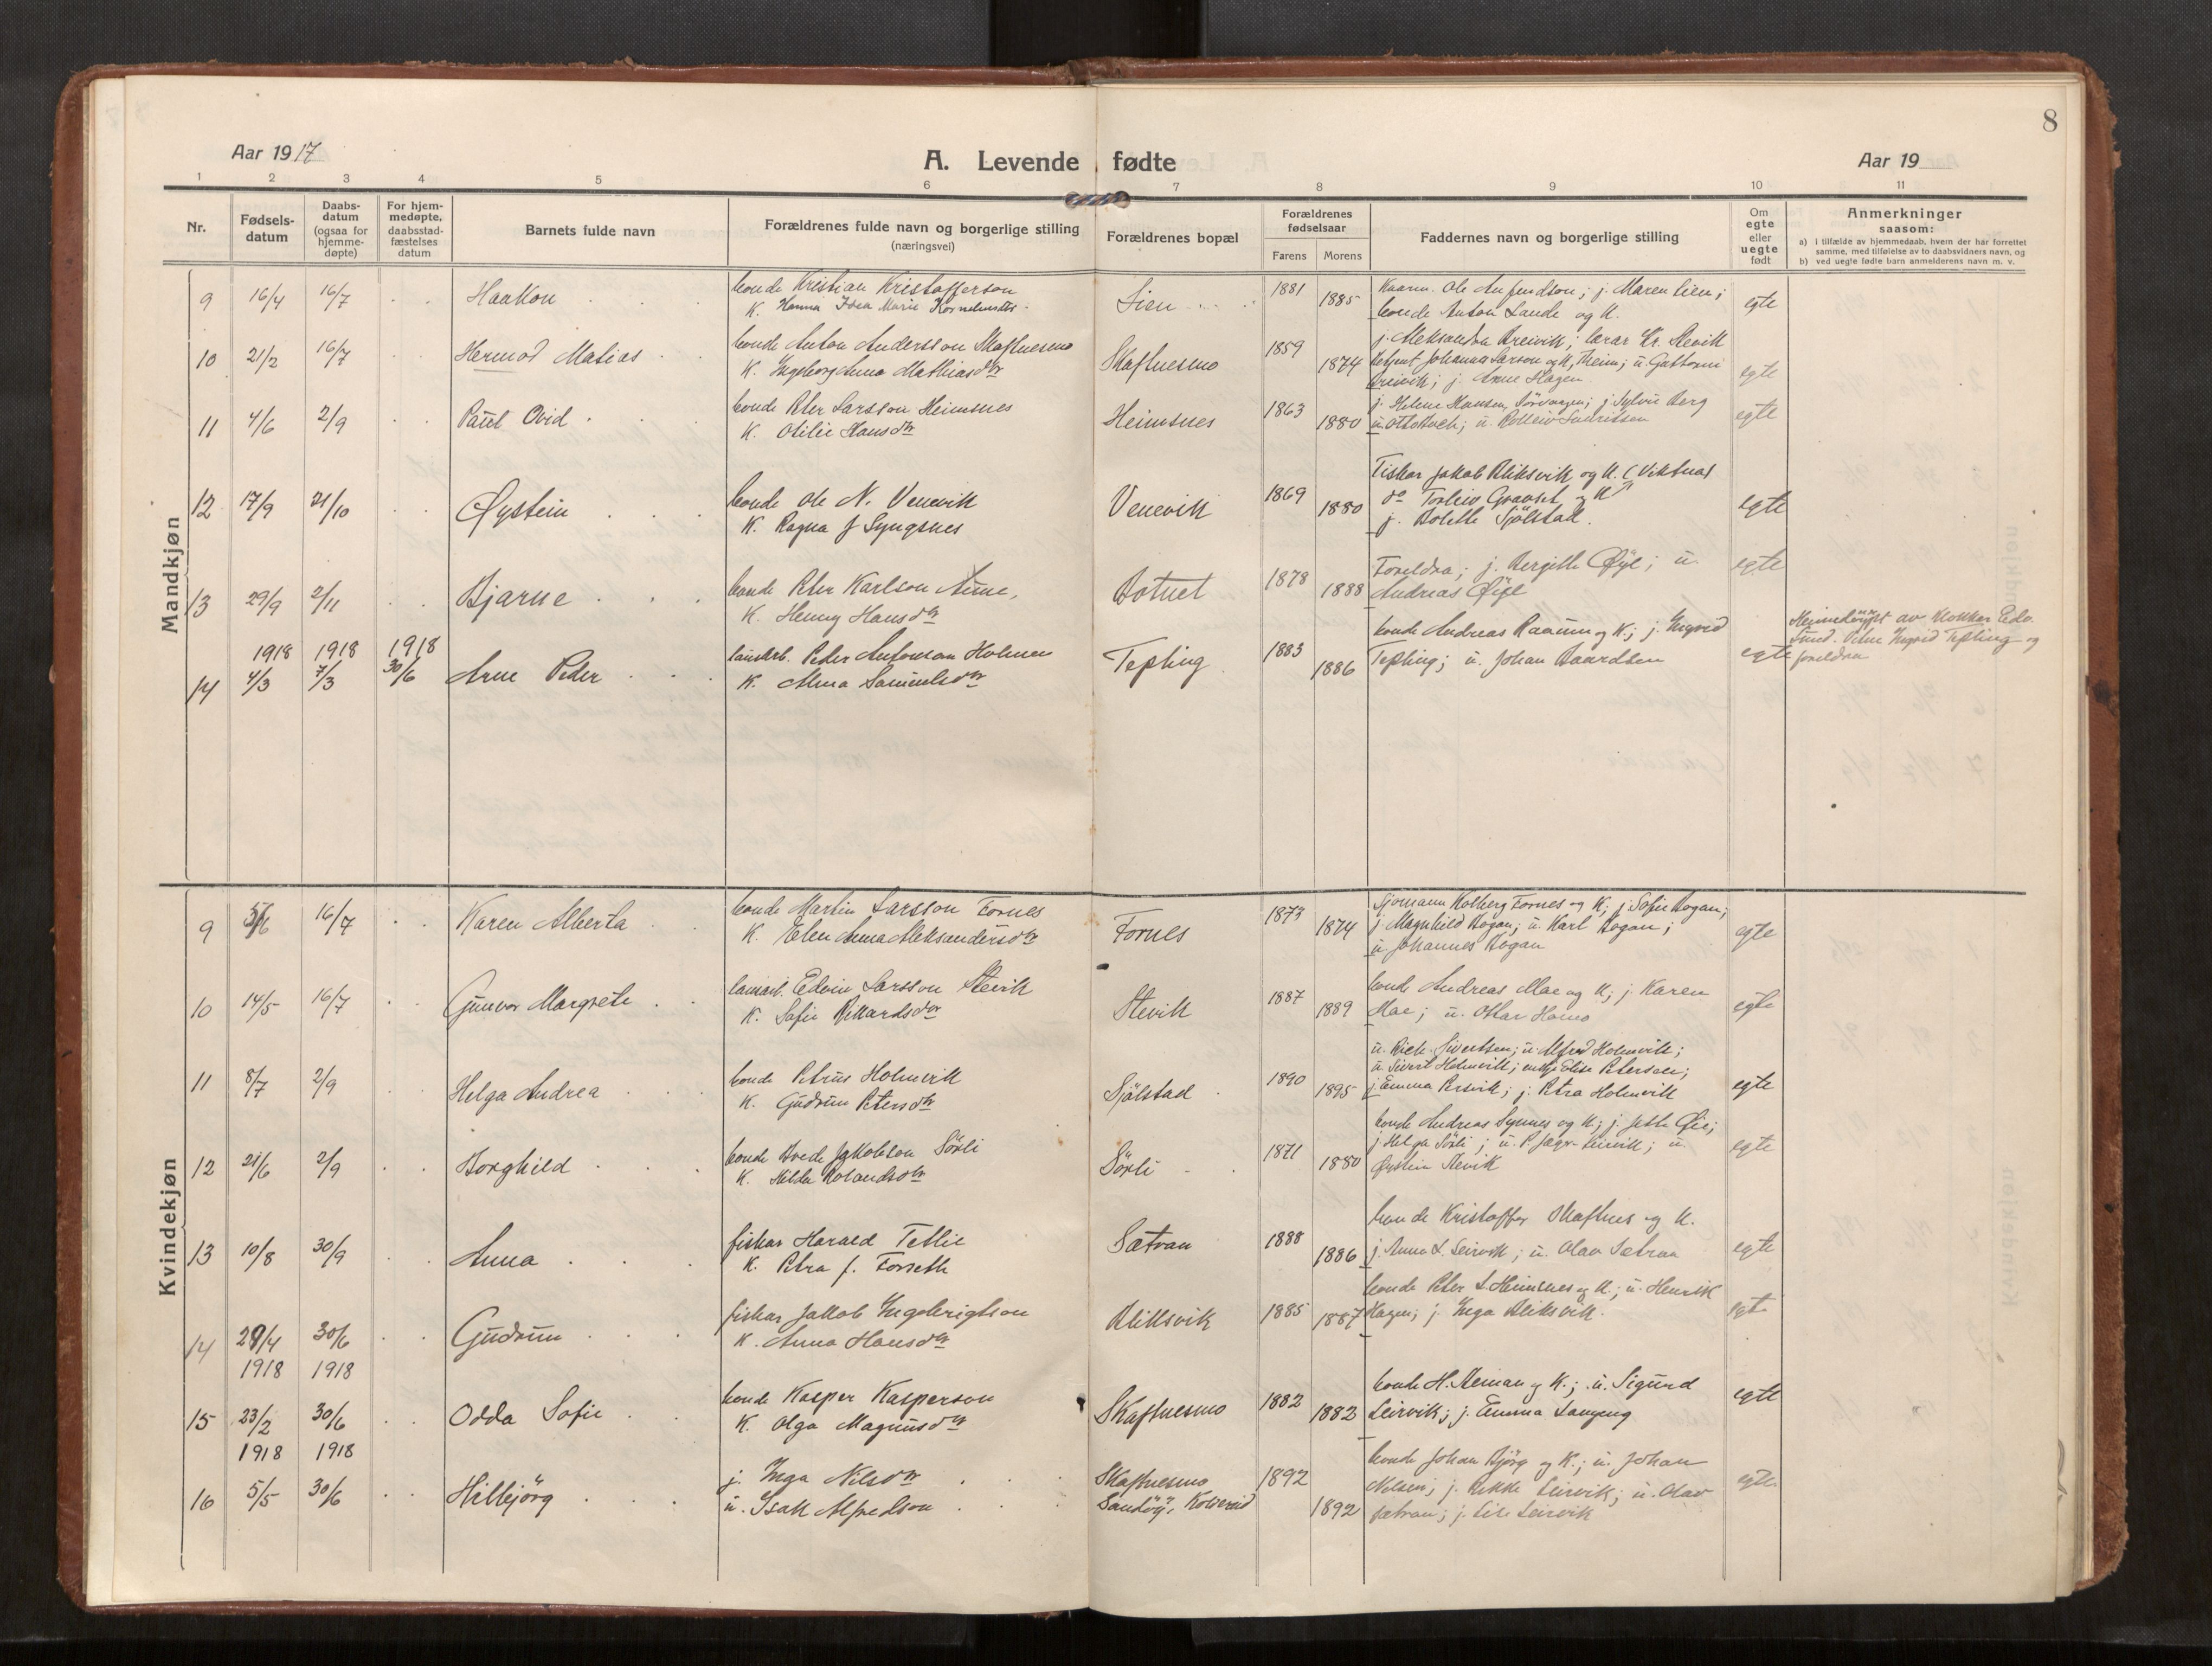 8
Aar 1917
A. Levende fødte
Aar 19
1 2 3 4 5 6 7 8 9 10 11
Nr.
Fødsels-
datum
Daabs-
datum
(ogsaa for
hjemme-
døpte)
For hjem-
medøpte,
daabsstad-
fæstelses
datum
Barnets fulde navn
Forældrenes fulde navn og borgerlige stilling
(næringsvei)
Forældrenes bopæl
Forældrenes
fødselsaar
Farens Morens
Faddernes navn og borgerlige stilling
Om
egte
eller
uegte
født
Anmerkninger
saasom:
a) i tilfælde av hjemmedaab, hvem der har forrettet
samme, med tilføielse av to daabsvidners navn, og
b) ved uegte fødte barn anmelderens navn m. v.
Mandkjøn
9 16/4 16/7 Haakon
bonde Kristian Kristofferson
K. Hanna Marie
Lien 1881 1885
j. Maren Lien;
bonde Anton Lande og K.
egte
10 21/2 16/7 Hermod Matias
bonde Anton Andersson Skaflnesmo
K. Ingeborg Anna Mathiasdtr
Skaflnesmo 1859 1874
j. Aleksandra Kreivik; lærar Kr. Stevik
Johannes Larson og K, Theim; u. Guttorm
Kreivik; j. Anne Hagen
egte
11 4/6 2/9 Paul Ovid
bonde Peter Larsson Heimsnes
K. Otilie Hansdtr
Heimsnes 1863 1880
j. Helene Hansen, j. Sylvie Berg
egte
12 17/9 21/10 Øystein
bonde Ole N. Venevik
K. Ragna f Syngsnes
Venevik 1869 1880
Fiskar Jakob Bliksvik og K.
do Torleiv og K
j. Bolette Sjölstad.
egte
13 29/9 2/11 Bjarne
bonde Peter Karlson Aune,
K. Henny Hansdtr
Botnet 1878 1888
Foreldra; j. Bergitte Øye; u.
Andreas Øye
egte
1918 1918 1918
14 4/3 7/3 30/6 Arne Peder
Peder Antonson Holmen
K. Alma Samuelsdtr
Tepling 1883 1886
bonde Andreas Raaum og K; j. Ingrid
Tepling; u. Johan Baardsen
egte
Heimedöypt av klokkar Edv.
Sund. Vitne Ingrid Tepling og
foreldra
Kvindekjøn
9 16/7 Karen Alberta
bonde Martin Larsson Fornes
K. Elen Anna Aleksandersdtr
Fornes 1873 1874
Sjømann Kolberg Fornes og K; j. Sofie Bogan;
j. Magnhild Bogan; u. Karl Bogan;
u. Johannes Bogan
egte
10 14/5 16/7 Gunvor Margrete
Edvin Larsson Stevik
K. Sofie Rikardsdtr
Stevik 1887 1889
bonde Andreas Moe og K; j. Karen
Moe; u. Otkar Hauvo
egte
11 8/7 2/9 Helga Andrea
bonde Petrus Holmvik
K. Gudrun Petersdtr
Sjölstad 1890 1895
u. Rich. Sivertsen; u. Alfred Holmvik;
u. Sivert Holmvik; Elise Petersen;
j. Emma; j. Petra Holmvik
egte
12 21/6 2/9 Borghild
bonde Jakobson Sörli
K. Hilda Rolandsdtr
Sörli 1871 1880
bonde Andreas Synnes og K; j. Øie;
j. Helga Sörli; u.
Øystein Stevik
egte
13 10/8 30/9 Anna
fiskar Harald Tetlie
K. Petra f. Forseth
Sætran 1888 1886
bonde Kristoffer Skaflnes og K.
j. Anna L. Leirvik; u. Olav Sætran
egte
14 29/4 30/6 Gudrun
1918 1918
fiskar Jakob Ingebrigtson
K. Anna Hansdtr
Bliksvik 1885 1887
bonde Peter L. Heimsnes og K; u. Henrik
Hagen; j. Inga Bliksvik.
egte
15 23/2 30/6 Odda Sofie
1918 1918
bonde Kasper Kasperson
K. Olga Magnusdtr
Skaflnesmo 1882 1882
bonde H. og K.; u. Sigurd
Leirvik; j. Emma
egte
16 5/5 30/6 Hilbjörg
j. Inga Nilsdtr
u. Isak Alfredson
Skaflnesmo
Sandöy, Kolvereid
1892 1892
bonde Johan Björg og K.; u. Johan
Nilsen; j. Rikke Leirvik; u. Olav
Sætran; j. Leirvik
egte